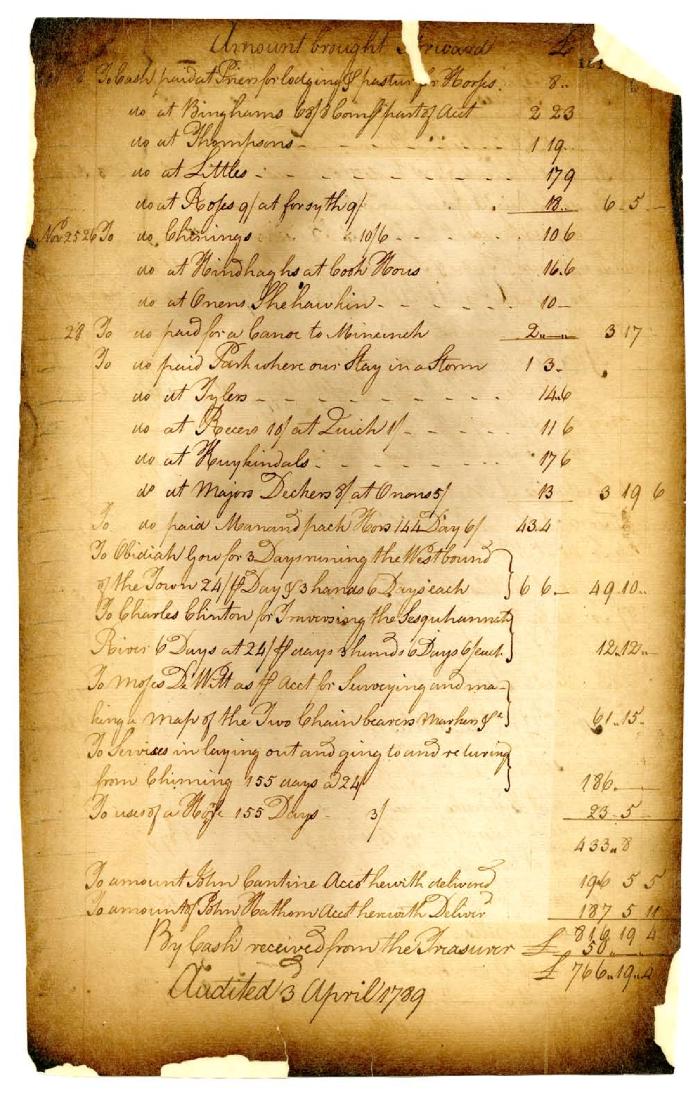 Amount brought forward £
To Cash paid at Friers for lodging & pastur for Horses. 8..
do at Binghams 68/3 Comss part of Acct 2 23
do at Thompsons - - - 1 19
do at Littles - - - 17 9
do at Roses 9/ at forsyth 9/ 18.. 6 5
Nov 25 26 To do Chenings 10/6 - - 10 6
do at Hindhaghs at Cook Hous 16.6
do at Onens Shehawkin - - - 10 -
28 To do paid for a Canoe to Minisinck 2 3 17
To do paid Park where our Stay in a Storm 1 3-
do at Tylers - - - 14.6
do at Reeces 10/ at Quick 1/ 11 6
do at Kuykindals - - - 17 6
do at Majors Deckers 8/ at Onons 5/ 13 3 19 6
To do paid Man and pack Hors 144 Day 6/ 43.4
To Obidiah Gou for 3 Days runing the West bound
of the Town 24/ ℔ Day & 3 hands 6 Days each 6 6 - 49 10..
To Charles Clinton for Traversing the Sesquhannah
River 6 Days at 24/ ℔ days 3 hands 6 Days 6/ each 12.12..
To Moses De Witt as ℔ Acct for Surveying and ma-
king a map of the Two Chain bearers Markers &c 61..15-
To Servises in laying out and going to and returing
from Chiming 155 days a 24/ 186.
To uses of a Horse 155 Days - 3/ 23 - 5
433 " 8
To amount John Cantine Acco hewith delivered 196 5 5
To amount of John Hathorn Acco herewith Deliver 187 5 11
816 19 4
By Cash received from the Treasurer £ 50
£ 766 " 19 " 4
Audited 3 April 1789